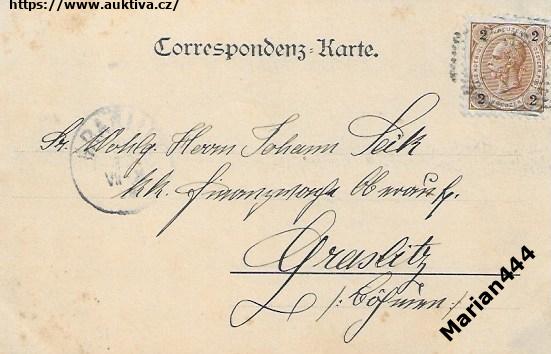 https://www.auktiva.cz/
Correspondenz-Karte.
2 2
2 2
Sr. Wohlg. Herrn Johann Seik
kk. Finanzwache Oberaufs.
Graslitz
/: Böhmen :/
Marian444